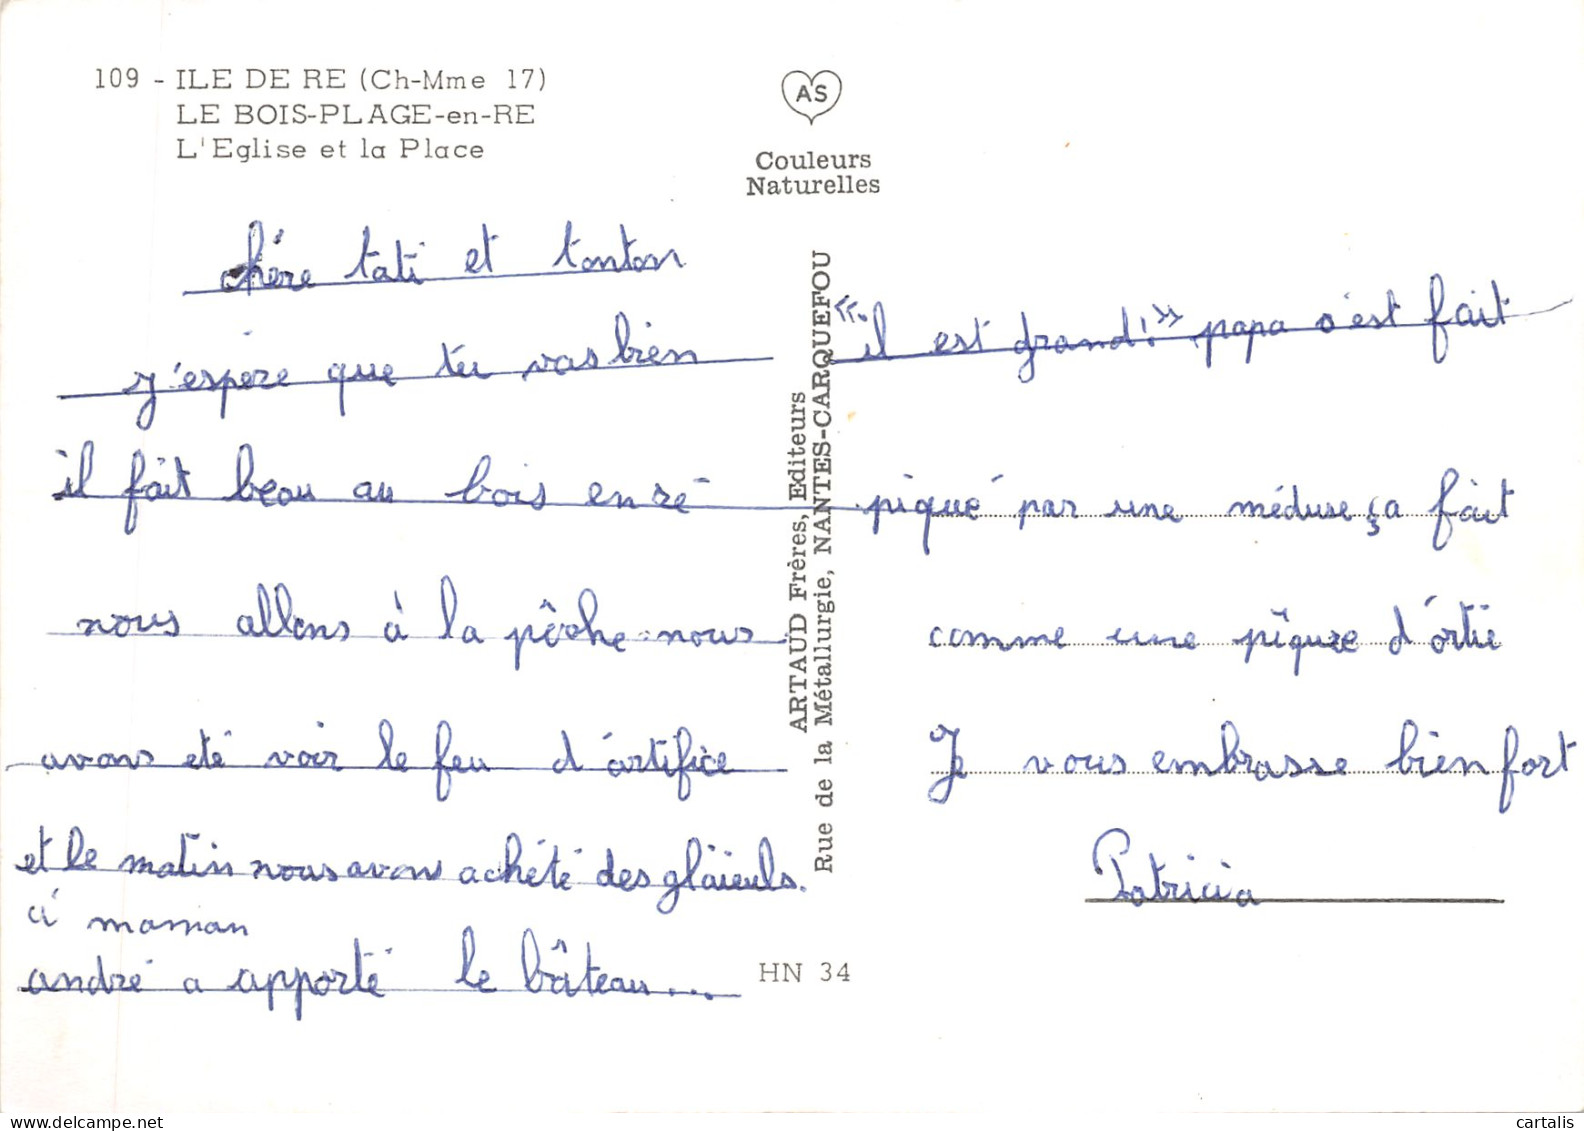 109 - ILE DE RE (Ch-Mme 17)
LE BOIS-PLAGE-en-RE
L'Eglise et la Place
AS
Couleurs
Naturelles
chère tati et tonton
j'espère que tu vas bien
il fait beau au bois en ré
nous allons à la pêche nous
avons eté voir le feu d'artifice
et le matin nous avons achété des glaïeuls.
à maman
andré a apporté le bâteau...
ARTAUD Frères, Editeurs
Rue de la Métallurgie, NANTES-CARQUEFOU
HN 34
« il est grand! » papa c'est fait
piqué par une méduse ça fait
comme une piqure d'ortie
Je vous embrasse bien fort
Patricia
cartalis
delcampe.net